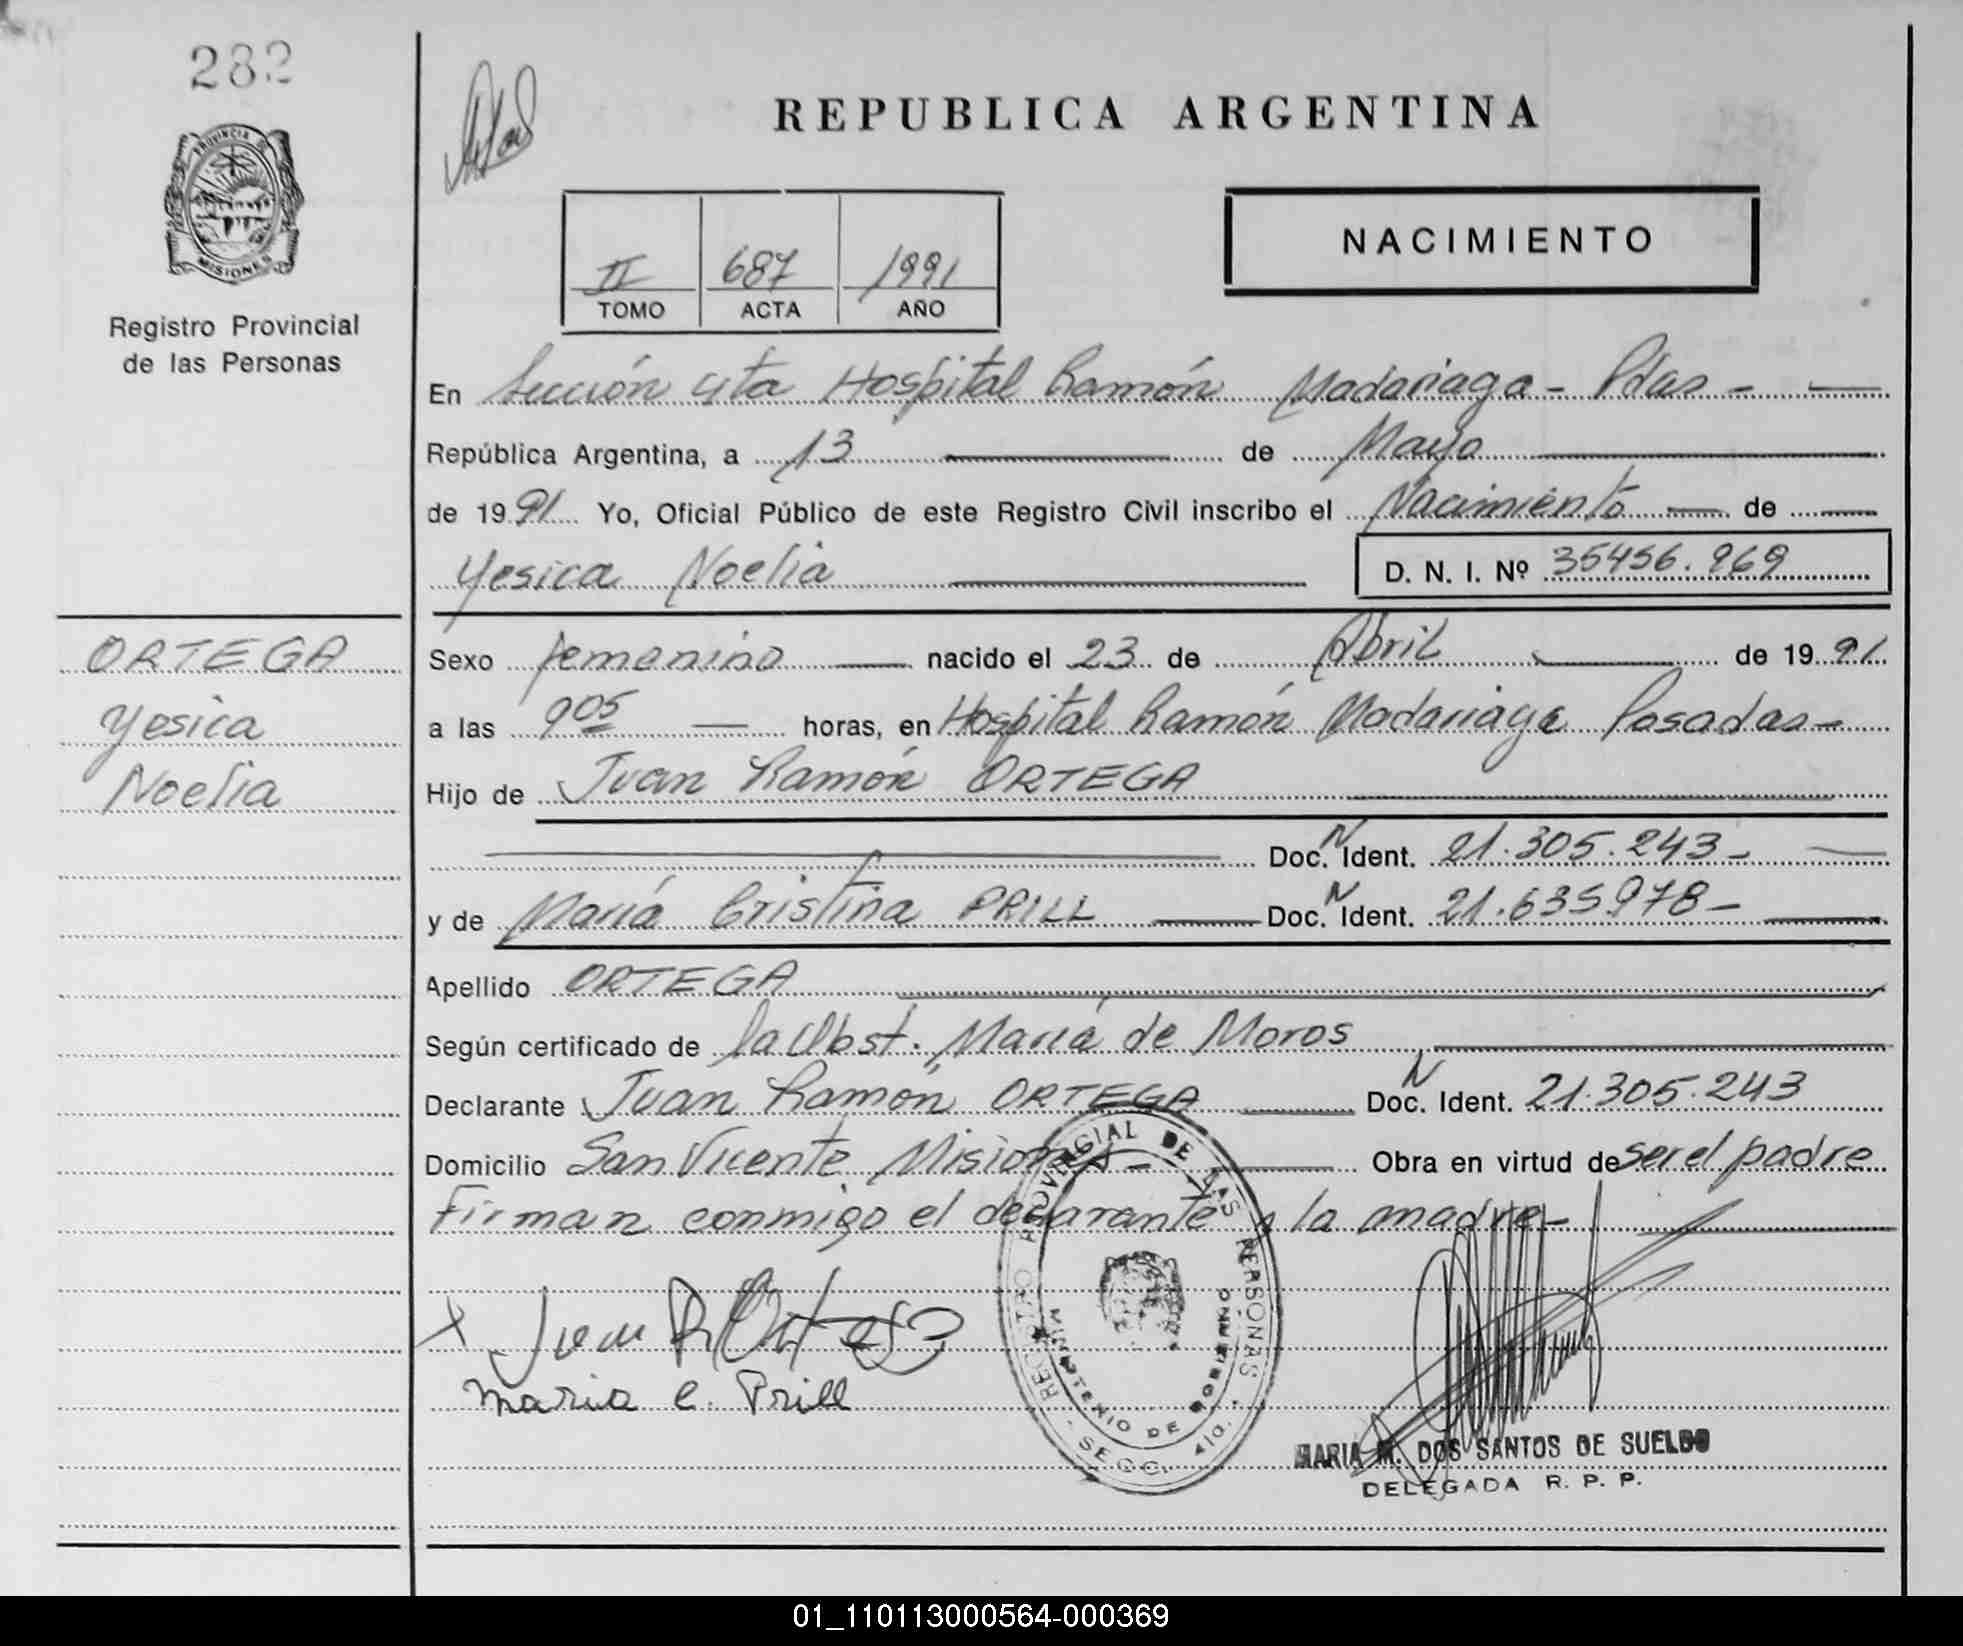 282
REPUBLICA ARGENTINA
PROVINCIA DE MISIONES
Registro Provincial
de las Personas
II 687 1991
TOMO ACTA AÑO
NACIMIENTO
En Sección 4ta Hospital Ramón Madariaga - Pdas -
República Argentina, a 13 de Mayo
de 1991 Yo, Oficial Público de este Registro Civil inscribo el Nacimiento de
Yesica Noelia D. N. I. Nº 35456.969
ORTEGA
Yesica
Noelia
Sexo femenino nacido el 23 de Abril de 1991
a las 905 horas, en Hospital Ramón Madariaga Posadas-
Hijo de Juan Ramón ORTEGA
Doc. N Ident. 21.305.243-
y de María Cristina PRILL Doc. N Ident. 21.635.978-
Apellido ORTEGA
Según certificado de la Obst. María de Moros
Declarante Juan Ramón ORTEGA Doc. N Ident. 21.305.243
Domicilio San Vicente Misiones - Obra en virtud de ser el padre
Firman conmigo el declarante y la madre-
x Juan R Ortega
maria c. Prill
REGISTRO PROVINCIAL DE LAS PERSONAS
MINISTERIO DE GOBIERNO
SECC. 4ta.
MARIA M. DOS SANTOS DE SUELDO
DELEGADA R. P. P.
01_110113000564-000369